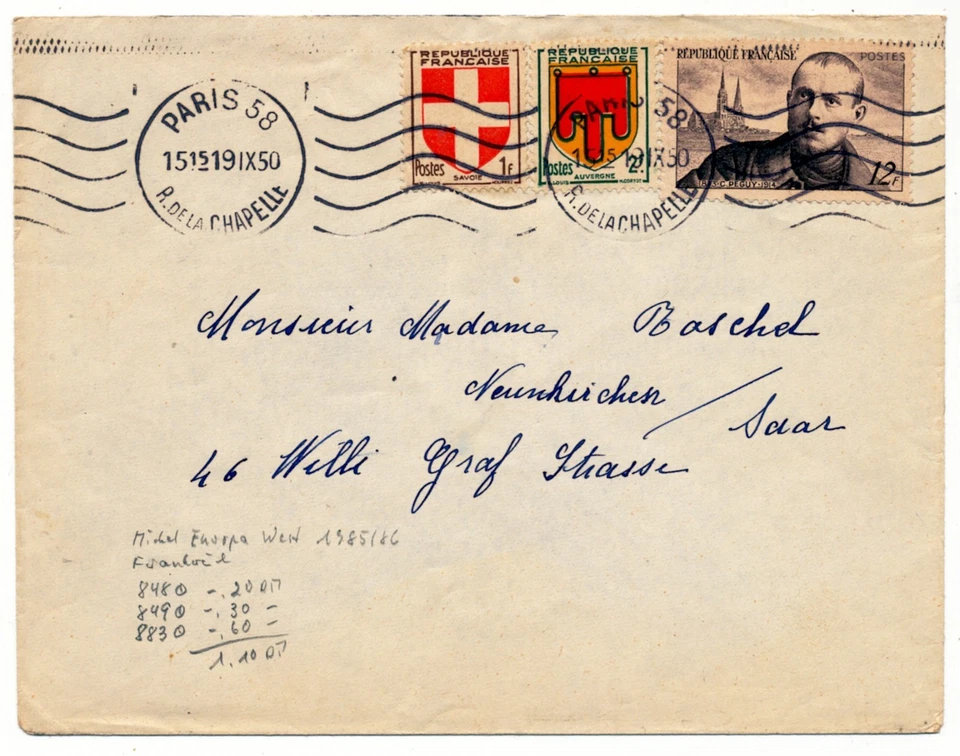 PARIS 58
15 15 19 IX 50
R. DE LA CHAPELLE
RÉPUBLIQUE
FRANÇAISE
Postes 1F
SAVOIE
RÉPUBLIQUE
FRANÇAISE
Postes 2F
AUVERGNE
PARIS 58
15 15 19 IX 50
R. DE LA CHAPELLE
RÉPUBLIQUE FRANÇAISE POSTES
C. PEGUY · 1914
12F
Monsieur Madame Baschel
Neunkirchen / Saar
46 Willi Graf Strasse
Michel Europa West 1985/86
Frankreich
848 ⊙ -.20 DM
849 ⊙ -.30 –
883 ⊙ -.60 –
1.10 DM